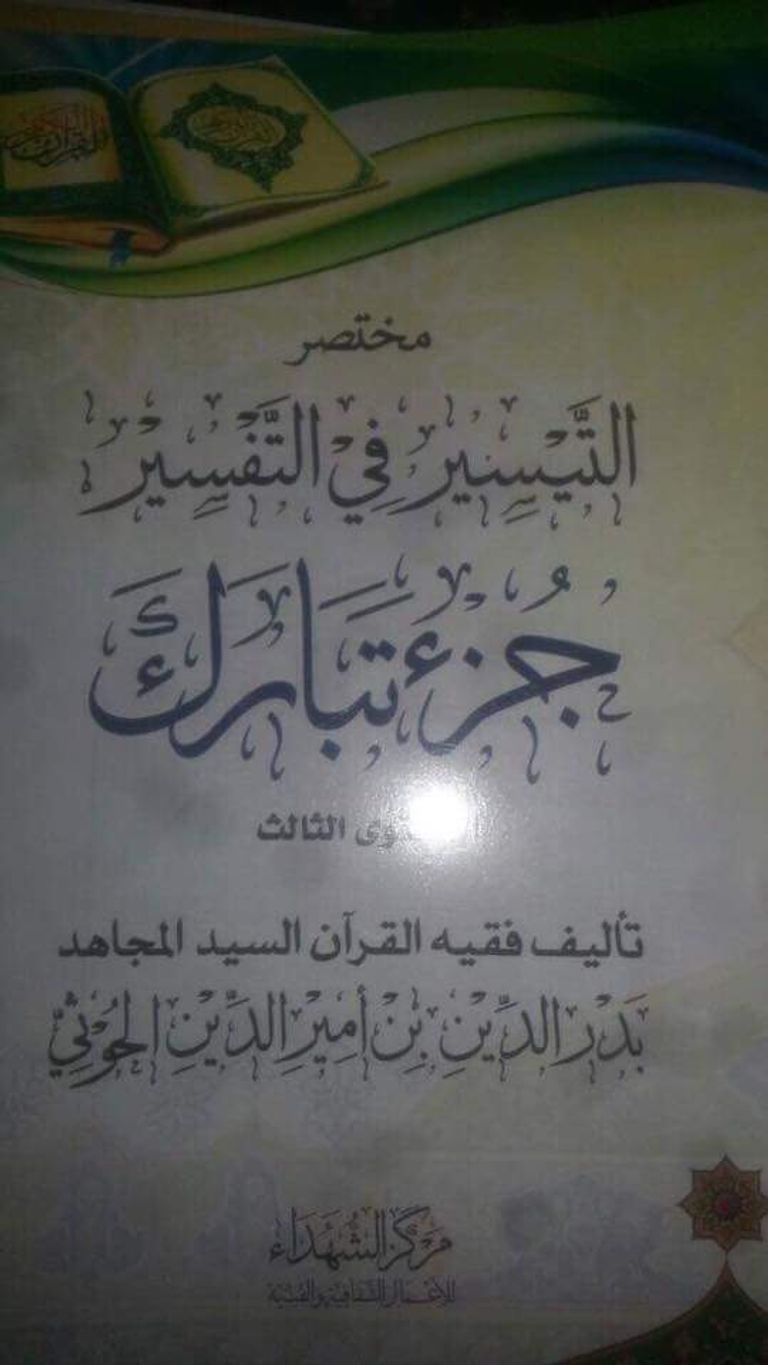 القرآن الكريم
مختصر
التَّيْسِيْرِ فِي التَّفْسِيْرِ
جُزْء تَبَارَكَ
الثالث
تأليف فقيه القرآن السيد المجاهد
بَدْرِ الدِّيْنِ بْنِ أَمِيْرِ الدِّيْنِ الحُوْثِيّ
مَرْكَز الشُّهَدَاء
للأعمال الثقافية والفنية